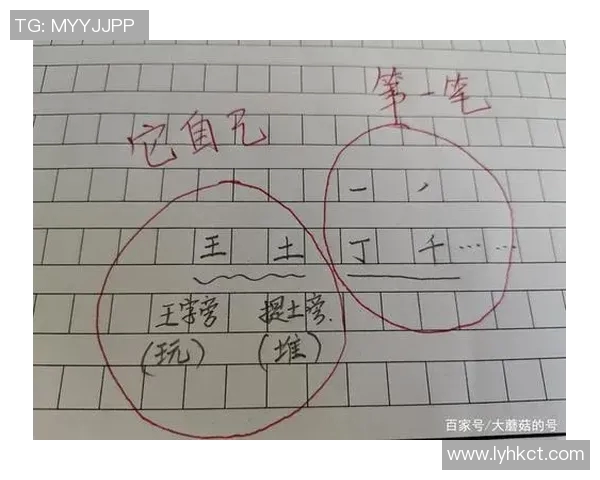 TG: MYYJJPP
第一笔
它自己
一 丿
王 土 丁 千……
王字旁 提土旁.
(玩) (堆)
百家号/大蘑菇的号
www.lyhkct.com